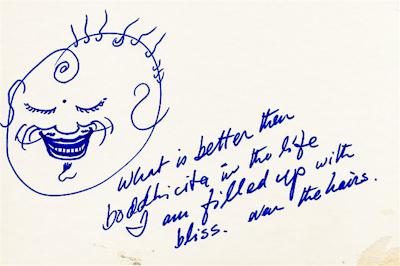 What is better then
boddhicita in the life
I am filled up with
bliss. over the hairs.